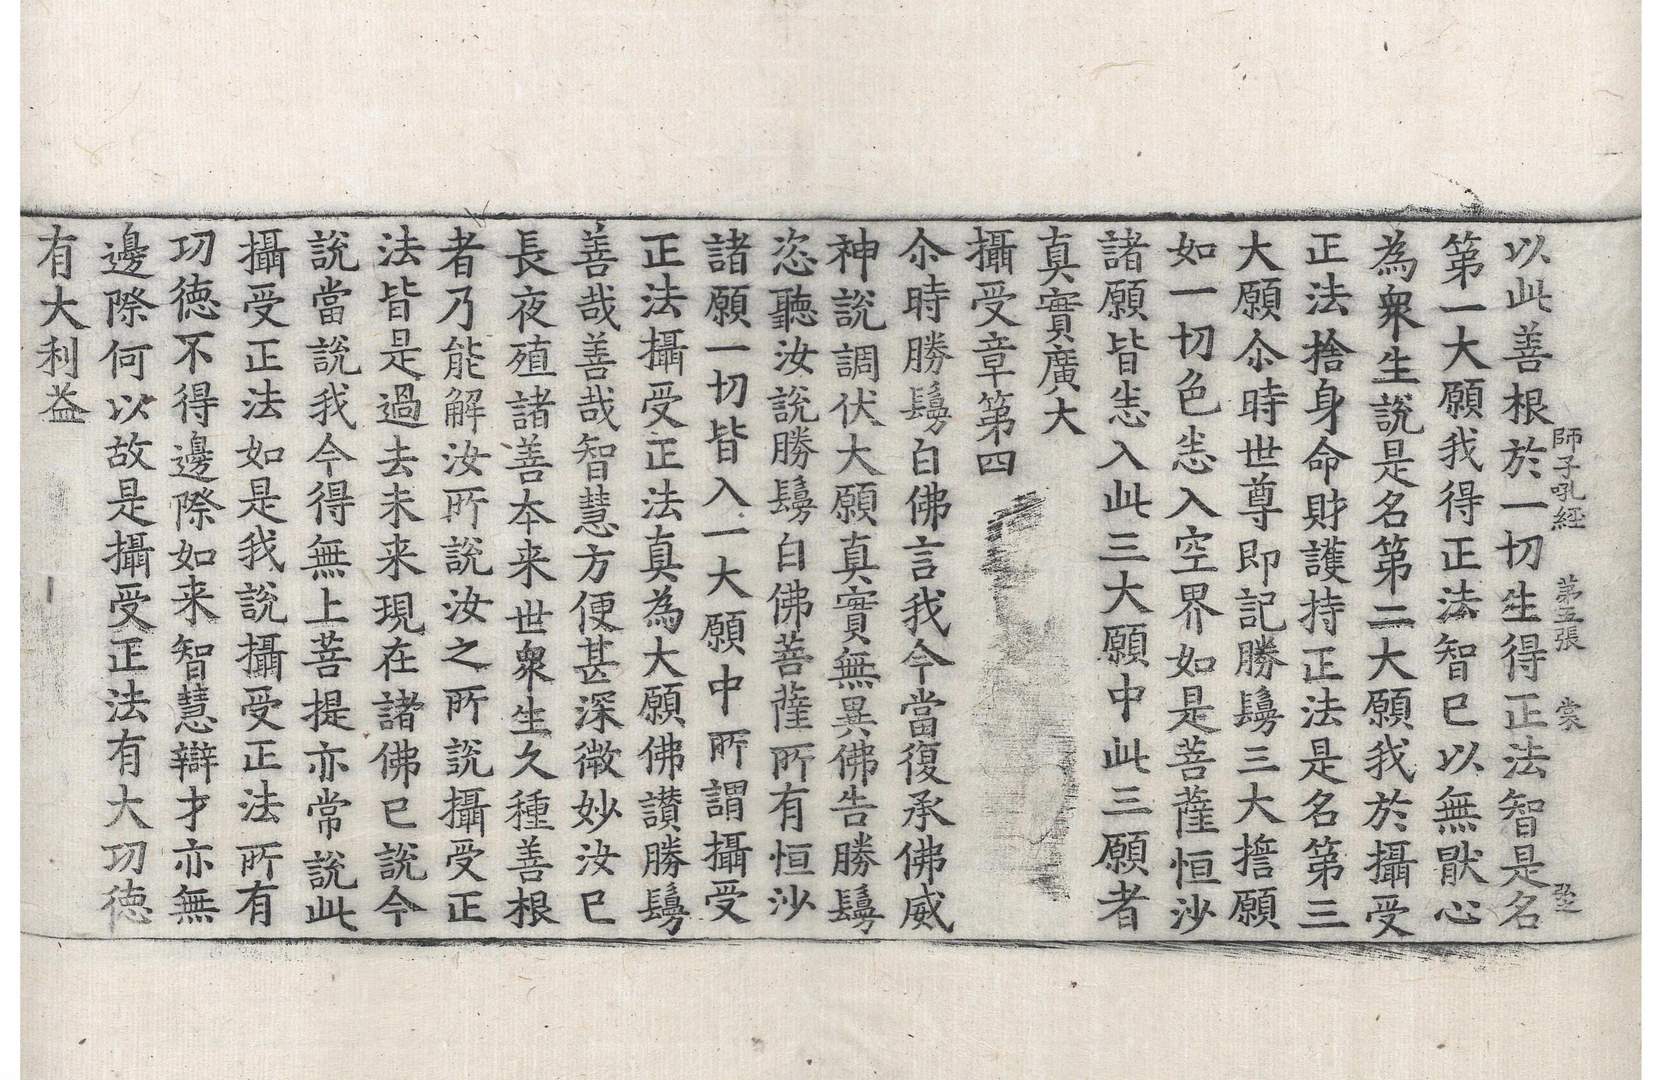 師子吼経 第五張 裳
以此善根於一切生得正法智是名
第一大願我得正法智已以無猒心
為衆生說是名第二大願我於攝受
正法捨身命財護持正法是名第三
大願尒時世尊即記勝鬘三大擔願
如一切色悉入空界如是菩薩恒沙
諸願皆悉入此三大願中此三願者
真實廣大
攝受章第四
尒時勝鬘白佛言我今當復承佛威
神說調伏大願真實無異佛告勝鬘
恣聽汝說勝鬘白佛菩薩所有恒沙
諸願一切皆入一大願中所謂攝受
正法攝受正法真為大願佛讃勝鬘
善哉善哉智慧方便甚深微妙汝已
長夜殖諸善本来世衆生久種善根
者乃能解汝所說汝之所說攝受正
法皆是過去未来現在諸佛已說今
說當說我今得無上菩提亦常說此
攝受正法如是我說攝受正法所有
功徳不得邊際如来智慧辯才亦無
邊際何以故是攝受正法有大功徳
有大利益